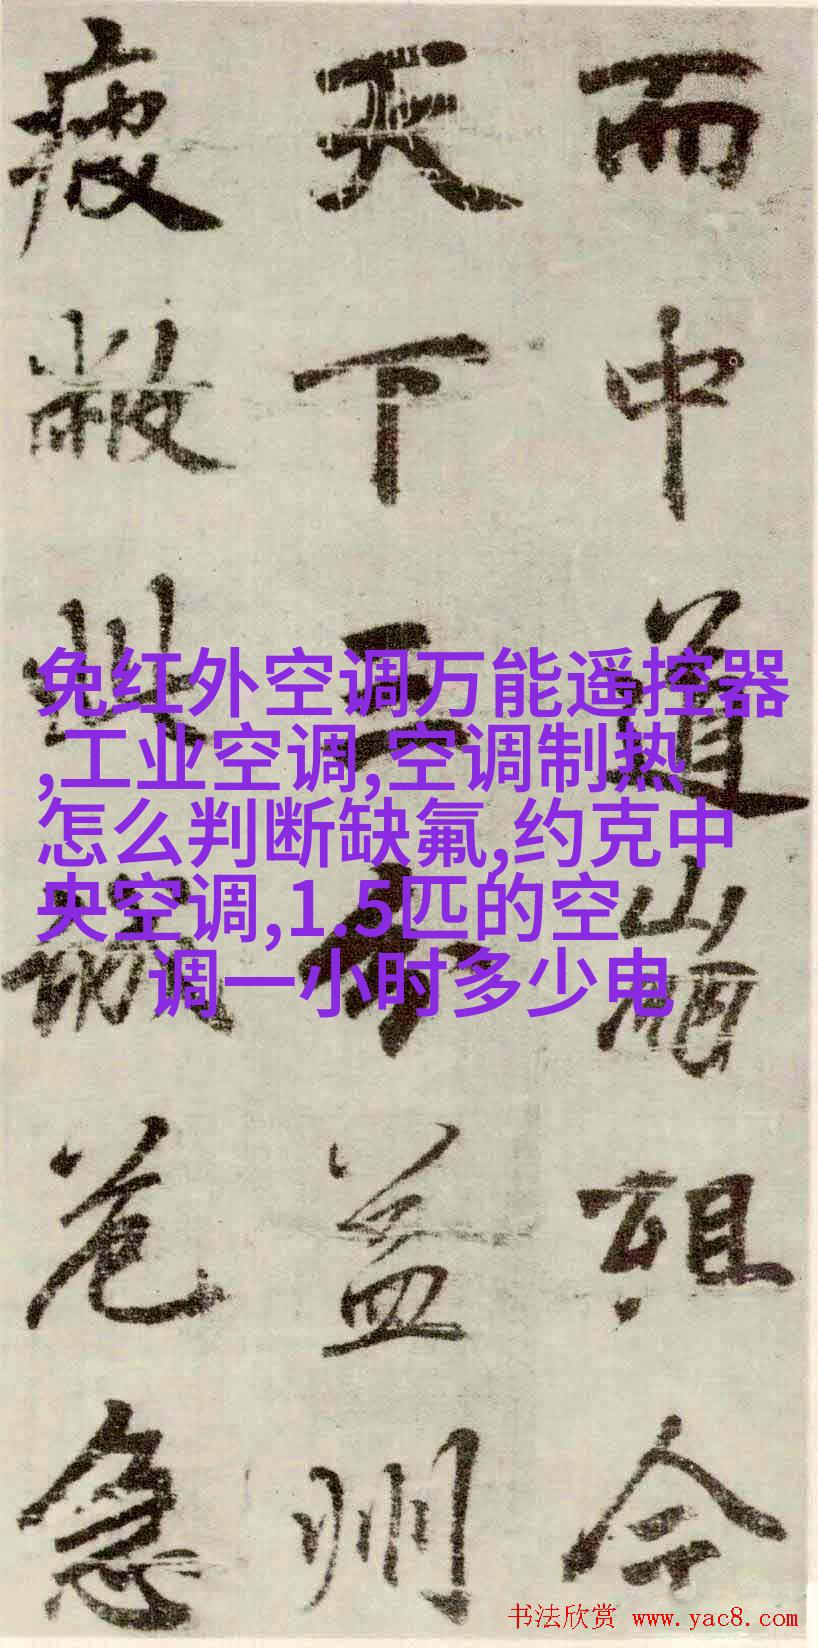 而中道崩殂今
天下三分益州
疲敝此誠危急
免红外空调万能遥控器
,工业空调,空调制热
怎么判断缺氟,约克中
央空调,1.5匹的空
调一小时多少电
书法欣赏 www.yac8.com